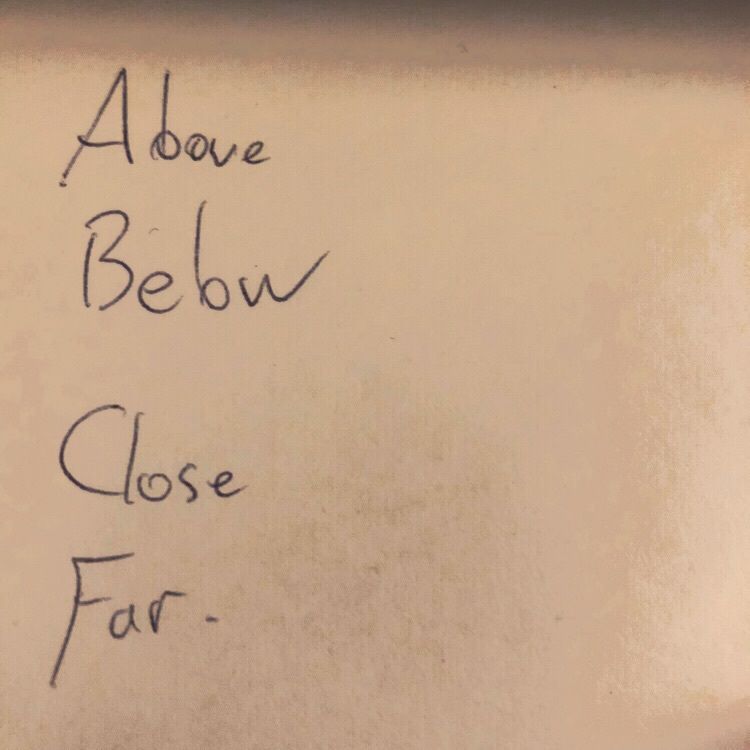 Above
Below
Close
Far.